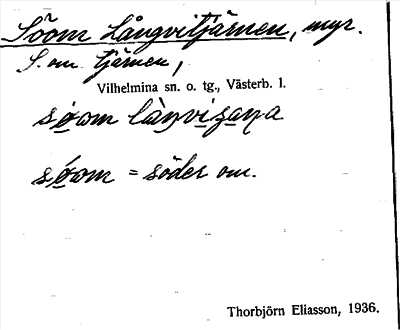 Söom Långvitjärnen, myr.
S. om tjärnen,
Vilhelmina sn. o. tg., Västerb. l.
söom
söom = söder om.
Thorbjörn Eliasson, 1936.